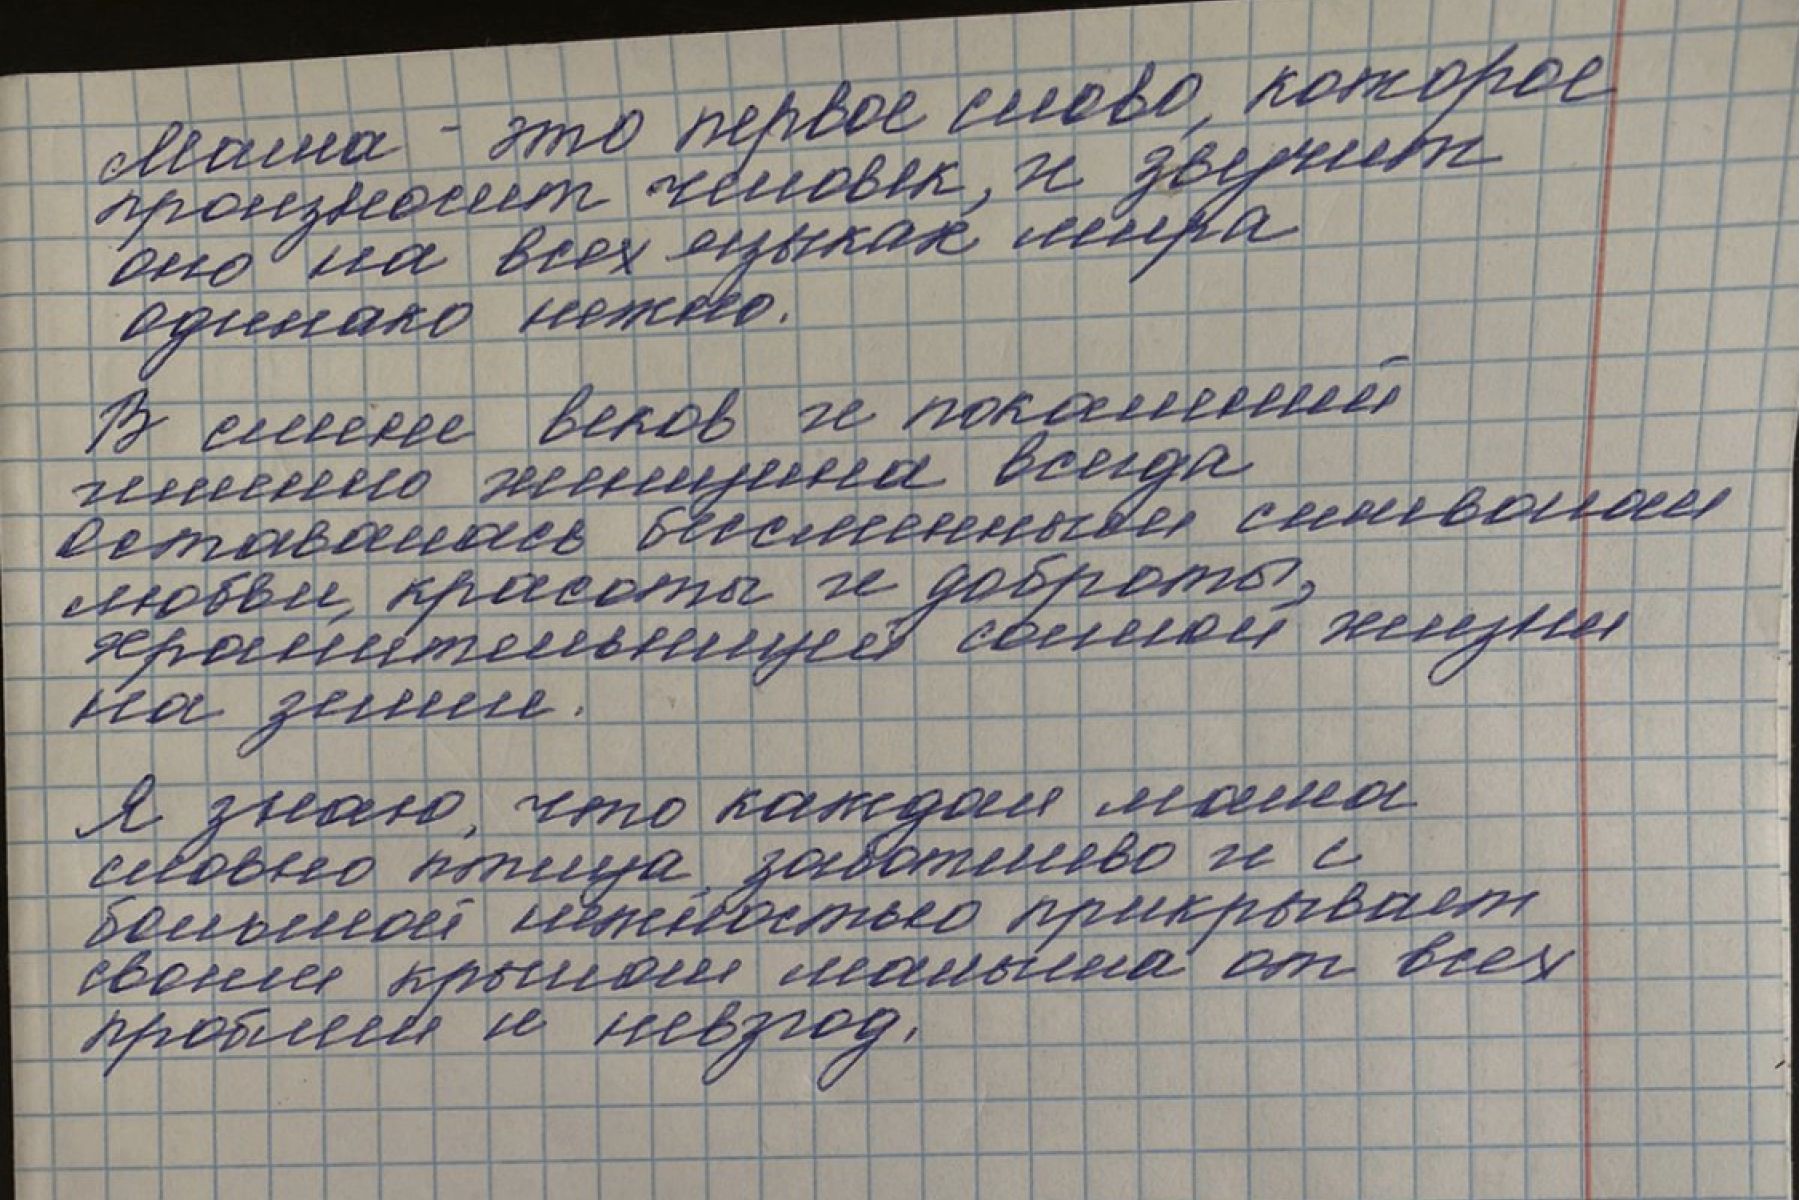 Мама - это первое слово, которое
произносит человек, и звучит
оно на всех языках мира
одинако нежно.
В смене веков и поколений
именно женщина всегда
оставалась бессменным символом
любви, красоты и доброты,
хранительницей самой жизни
на земле.
Я знаю, что каждая мама
словно птица, заботливо и с
большой нежностью прикрывает
своим крылом малыша от всех
проблем и невзгод.